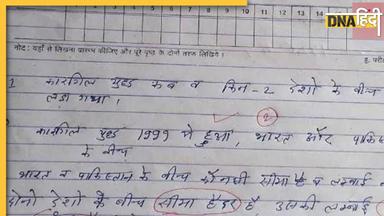 DNA हिंदी
8 9 10 11 12 13 14 15 16 17 18
नोट : यहाँ से लिखना प्रारम्भ कीजिए और पूरे पृष्ठ के दोनों तरफ लिखिये ।
1 कारगिल युद्ध कब व किन-2 देशो के बीच
लडा गया ।
2
कारगिल युद्ध 1999 मे हुआ, भारत और
के बीच
भारत व पाकिस्तान के बीच कौनसी सीमा है व लम्बाई
दोनो देशो के बीच सीमा हैडर है उसकी लम्बाई